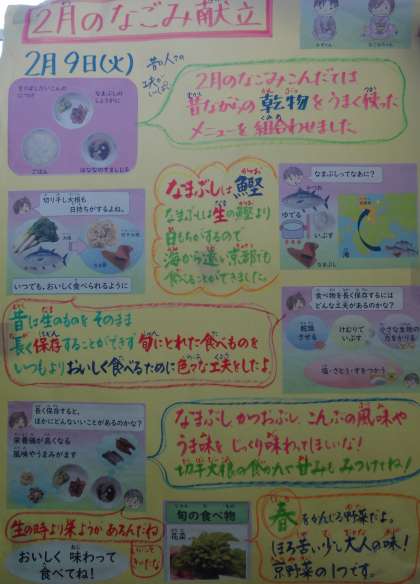 2月のなごみ献立
2月9日(火)
昔の人々の
工夫が
いっぱい
2月のなごみこんだては
昔ながらの乾物をうまく使った
メニューを組合わせました。
切り干しだいこんの
につけ
なまぶしの
しょうがに
ごはん
はななのすましじる
切り干し大根も
日持ちがするよね。
いつでも、おいしく食べられるように
なまぶしは鰹
なまぶしは生の鰹より
日もちがするので
海から遠い京都でも
食べることができました。
なまぶしってなあに?
かつお
ゆでる
いぶす
なまぶし
海
昔は生のものをそのまま
長く保存することができず旬にとれた食べものを
いつもよりおいしく食べるために色々な工夫をしたよ。
食べ物を長く保存するには
どんな工夫があるのかな?
乾燥
させる
けむりで
いぶす
小さな生物の
力をかりる
塩・さとう・すをつかう
長く保存すると、
ほかにどんないいことがあるのかな?
栄養価が高くなる
風味やうまみがます
なまぶし、かつおぶし、こんぶの風味や
うま味をじっくり味わってほしいな!
切干大根の食の人で甘みもみつけてね!
生の時より栄ようがあるんだね
おいしく 味わって
食べてね!
旬の食べ物
花菜
春をかんじる野菜だよ。
ほろ苦い少し大人の味!
京野菜の1つです。